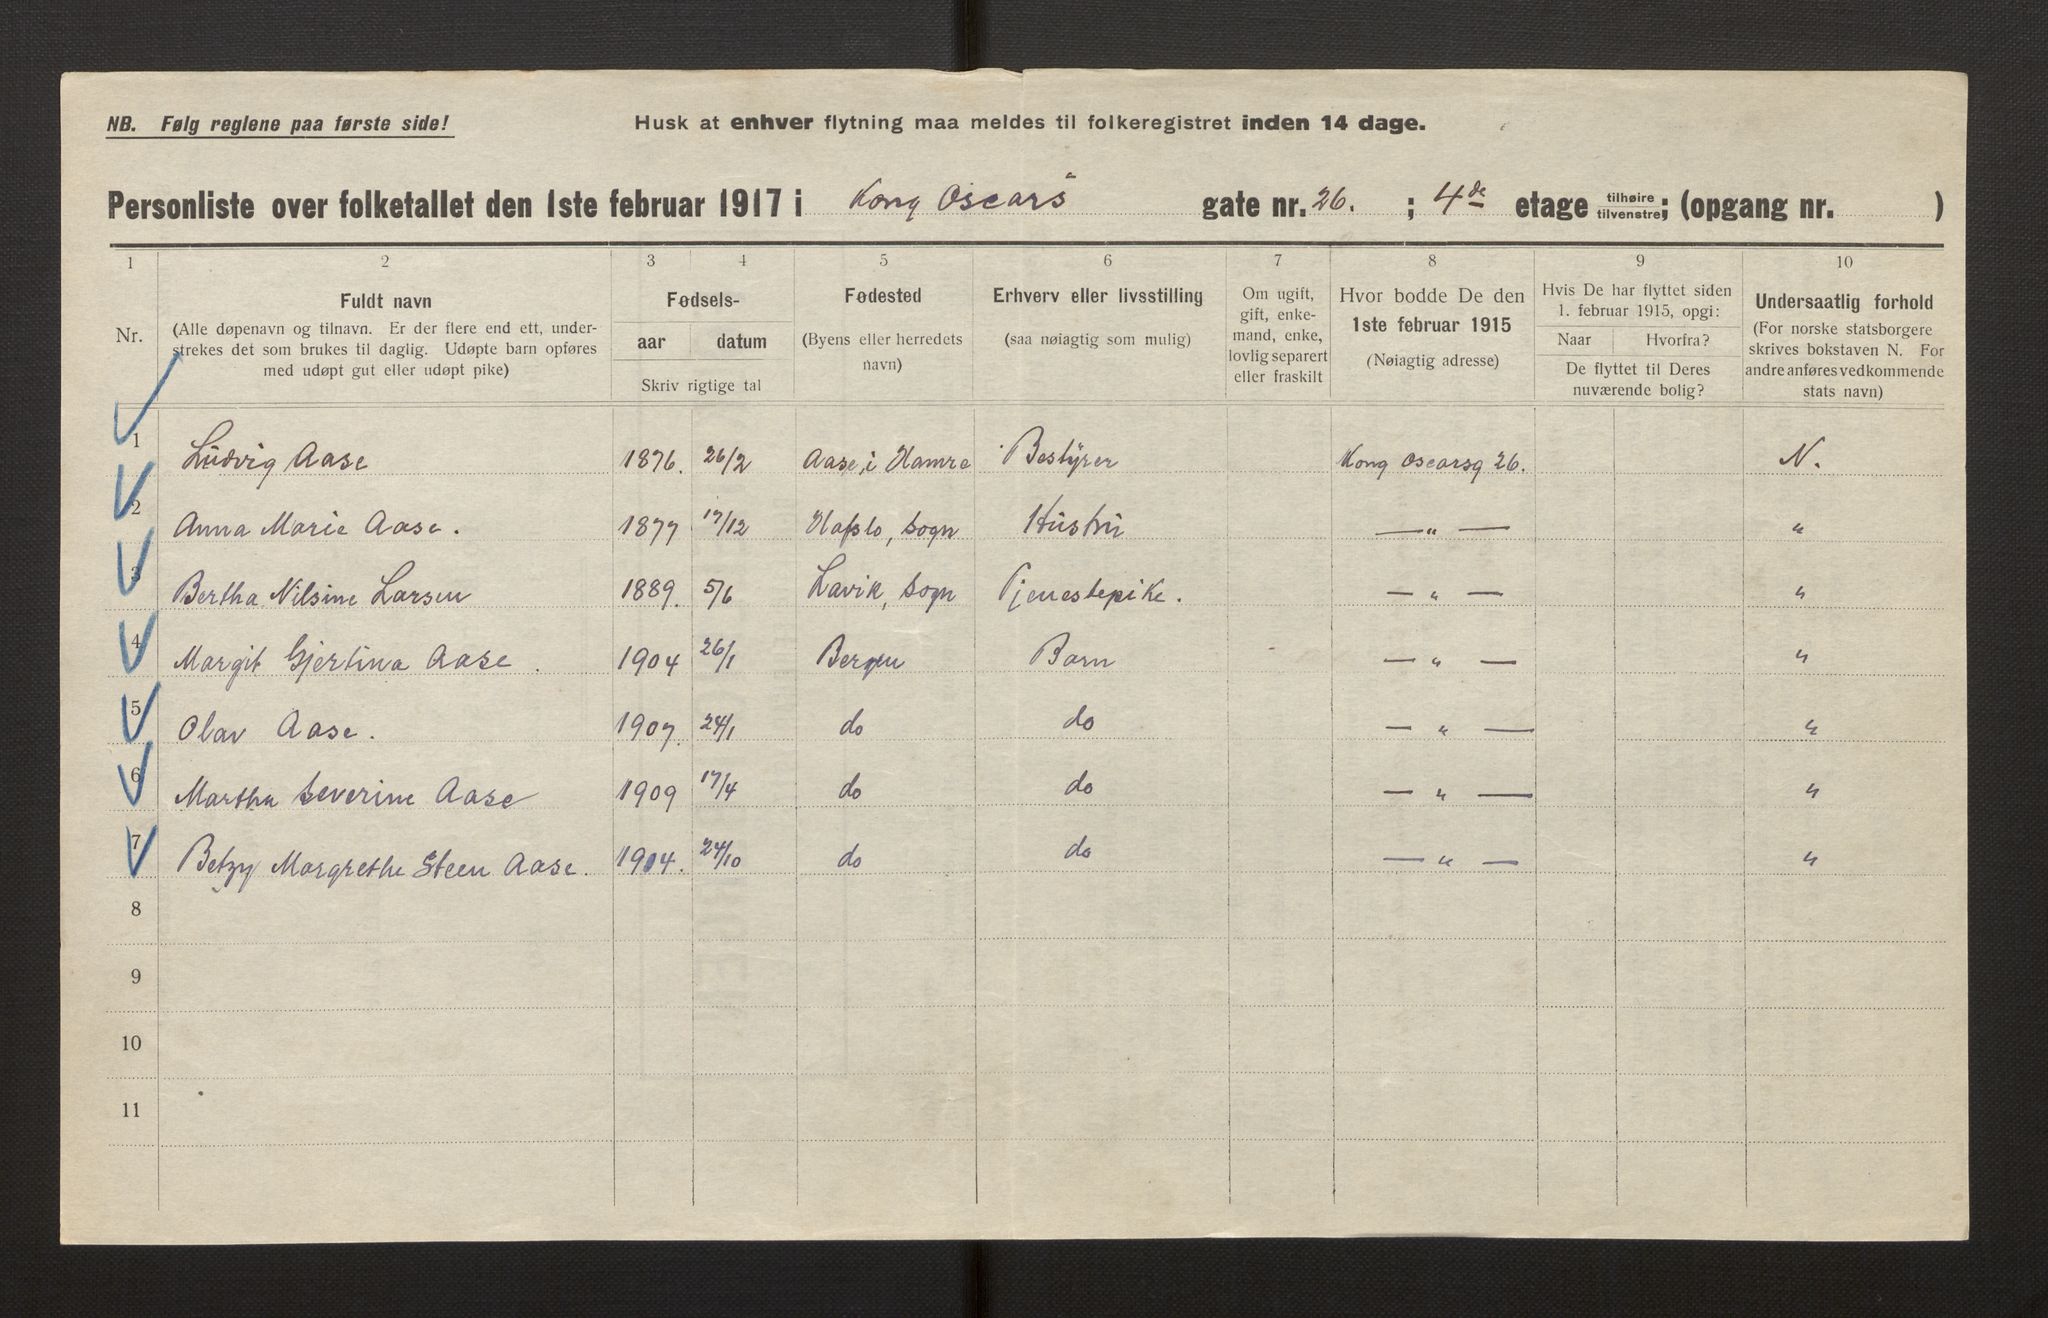 NB. Følg reglene paa første side!
Husk at enhver flytning maa meldes til folkeregistret inden 14 dage.
Personliste over folketallet den 1ste februar 1917 i Kong Oscars gate nr. 26. ; 4de etage tilhøire tilvenstre; (opgang nr. )
1 2 3 4 5 6 7 8 9 10
Nr.
Fuldt navn
(Alle døpenavn og tilnavn. Er der flere end ett, under-
strekes det som brukes til daglig. Udøpte barn opføres
med udøpt gut eller udøpt pike)
Fødsels-
aar datum
Skriv rigtige tal
Fødested
(Byens eller herredets
navn)
Erhverv eller livsstilling
(saa nøiagtig som mulig)
Om ugift,
gift, enke-
mand, enke,
lovlig separert
eller fraskilt
Hvor bodde De den
1ste februar 1915
(Nøiagtig adresse)
Hvis De har flyttet siden
1. februar 1915, opgi:
Naar Hvorfra?
De flyttet til Deres
nuværende bolig?
Undersaatlig forhold
(For norske statsborgere
skrives bokstaven N. For
andre anføres vedkommende
stats navn)
1 Ludvig Aase 1876. 26/2 Aase, i Hamre Bestyrer Kong Oscarsg 26. N.
2 Anna Marie Aase. 1877 17/12 Hafslo, Sogn Hustru — " — "
3 Bertha Nilsine Larsen 1889. 5/6 Lavik, Sogn Tjenestepike. — " — "
4 Margit Gjertina Aase. 1904 26/1 Bergen Barn — " — "
5 Olav Aase. 1907. 24/1 do do — " — "
6 Martha Severine Aase 1909 17/4 do do — " — "
7 Betzy Margrethe Steen Aase. 1904. 24/10 do do — " — "
8
9
10
11